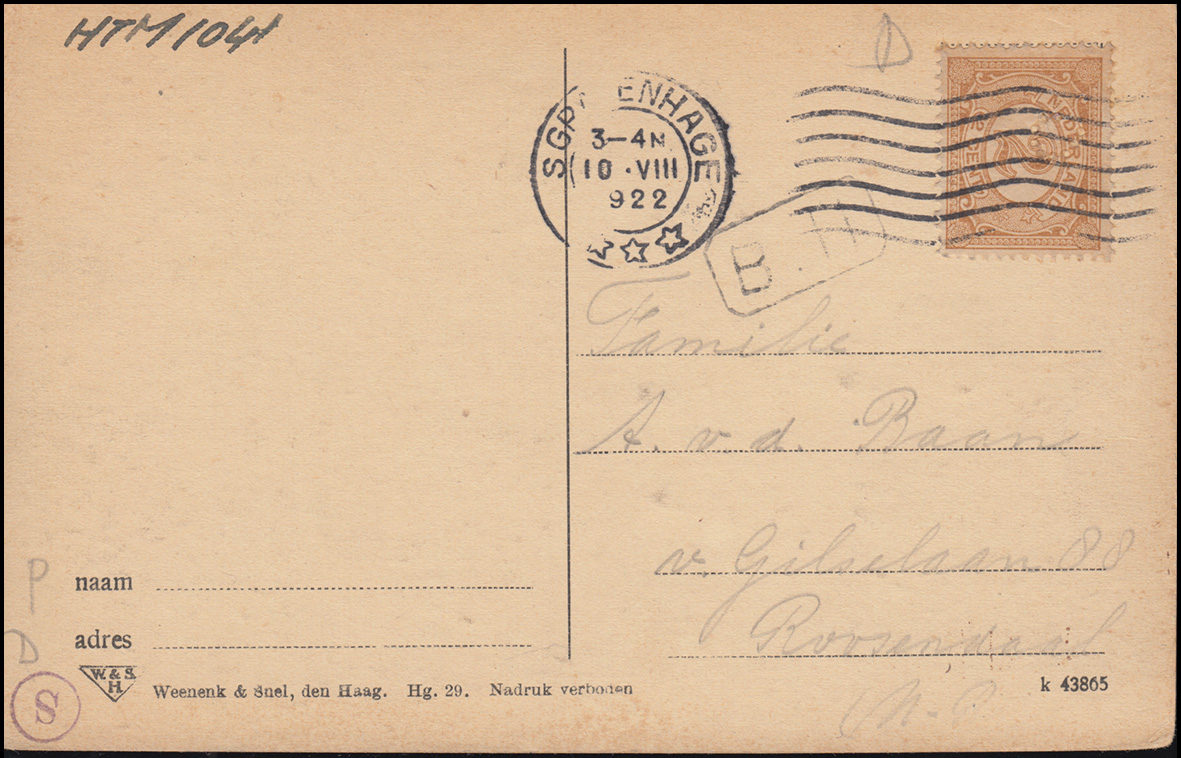 HTM 1041
D
SGRAVENHAGE
3-4 N
10 .VIII
922
NEDERLAND
2½ CENT
B.
Familie
A. v. d. Baan
v. Gilselaan 88
Roosendaal
P
naam
D
adres
W. & S.
H.
S
Weenenk & Snel, den Haag. Hg. 29. Nadruk verboden
k 43865